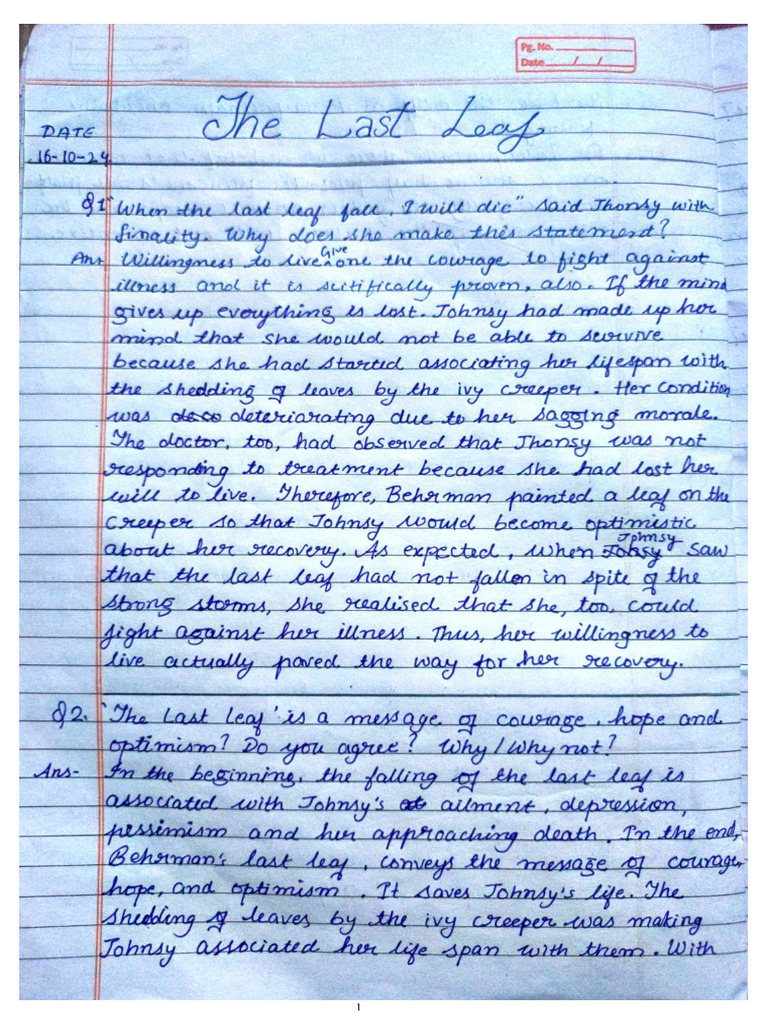 Pg. No.
Date / /
The Last Leaf
DATE
16-10-24
Q1 "When the last leaf fall, I will die" said Jhonsy with
finality. Why does she make this statement?
Ans Willingness to live ^Give one the courage to fight against
illness and it is scitifically proven, also. If the mind
gives up everything is lost. Johnsy had made up her
mind that she would not be able to survive
because she had started associating her lifespan with
the shedding of leaves by the ivy creeper. Her condition
was deco deteriarating due to her sagging morale.
The doctor, too, had observed that Jhonsy was not
responding to treatment because she had lost her
will to live. Therefore, Behrman painted a leaf on the
creeper so that Johnsy would become optimistic
about her recovery. As expected, when Johsy Johnsy saw
that the last leaf had not fallen in spite of the
strong storms, she realised that she, too, could
fight against her illness. Thus, her willingness to
live actually paved the way for her recovery.
Q2. 'The Last Leaf' is a message of courage, hope and
optimism? Do you agree? Why/Why not?
Ans- In the beginning, the falling of the last leaf is
associated with Johnsy's at ailment, depression,
pessimism and her approaching death. In the end,
Behrman's last leaf, conveys the message of courage,
hope, and optimism. It saves Johnsy's life. The
shedding of leaves by the ivy creeper was making
Johnsy associated her life span with them. With
1